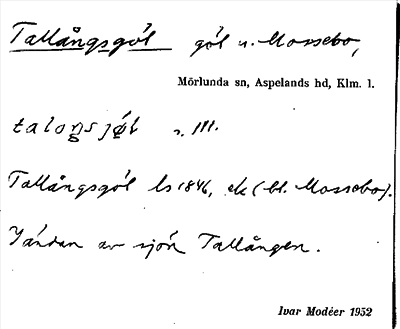 Tallångsgöl göl u. Mossebo,
Mörlunda sn, Aspelands hd, Klm. l.
taloŋsjø̀l n. III.
Tallångsgöl ls 1846, ek (bl. Mossebo).
I ändan av sjön Tallången.
Ivar Modéer 1952